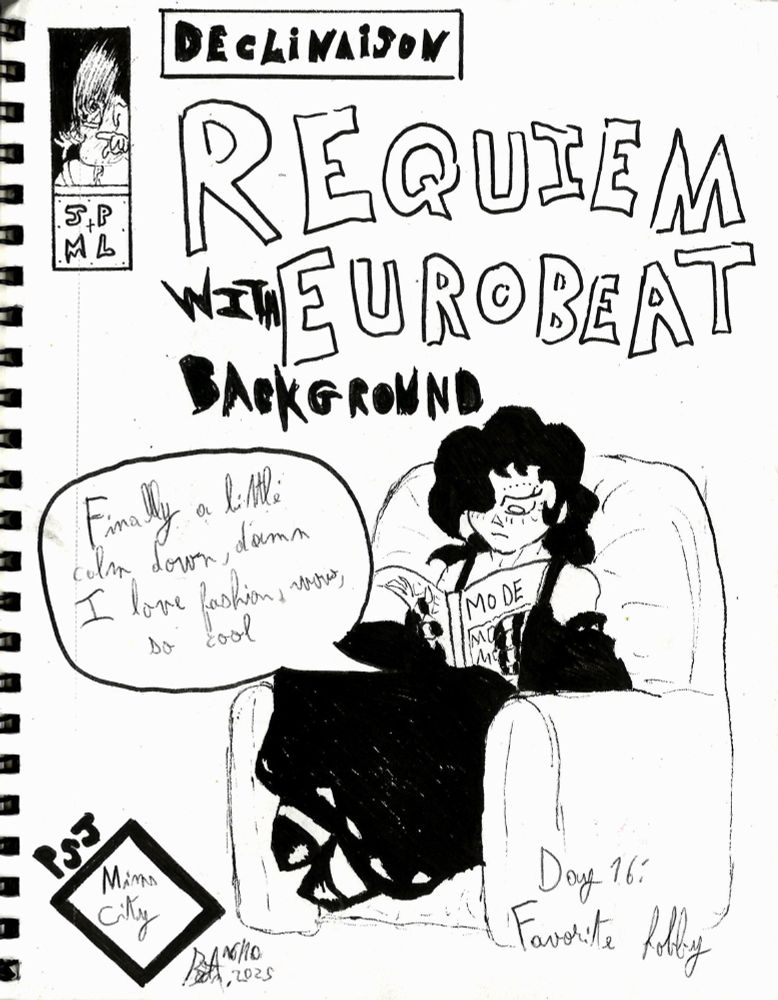 DECLiNAiSON
J+P
ML
REQUIEM
WITH EUROBEAT
BACKGROUND
Finally a little
calm down, damn
I love fashion, wow,
so cool
MODE
PSJ
Mima
City
Day 16:
Favorite hobby
16/10
2025